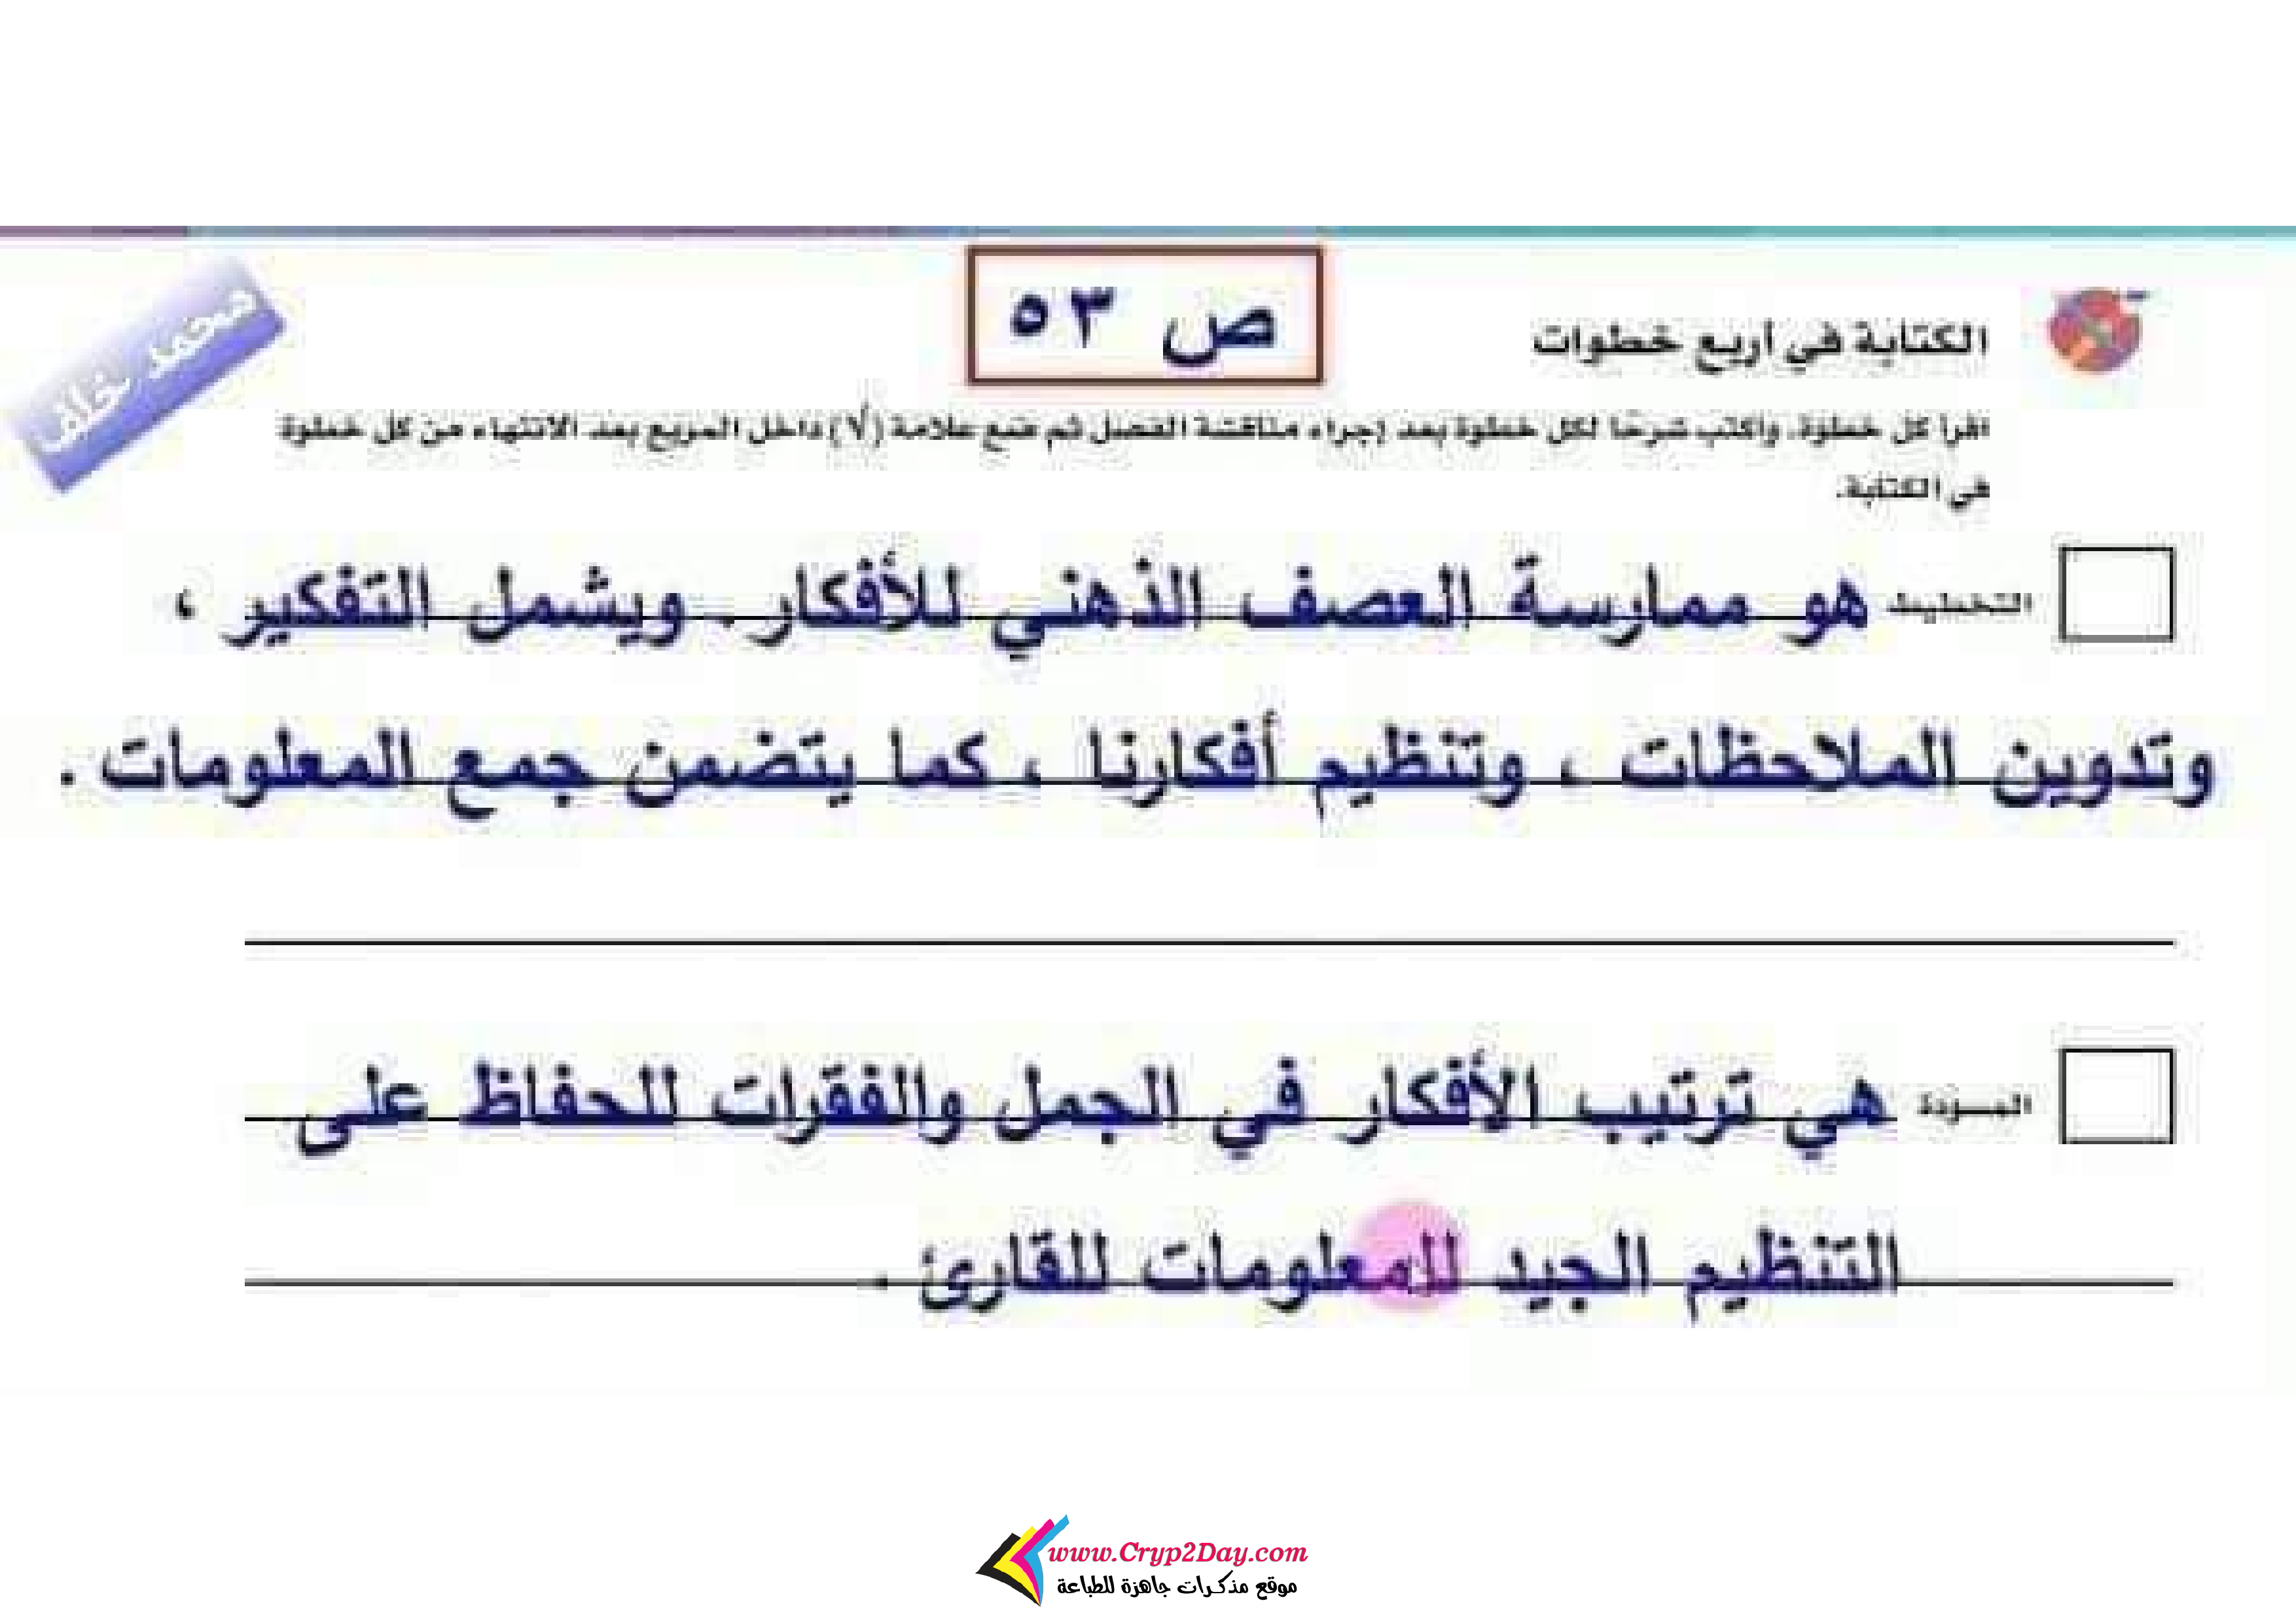 ص ٥٣
الكتابة في أربع خطوات
محمد خلف
اقرأ كل خطوة، واكتب شرحًا لكل خطوة بعد إجراء مناقشة الفصل ثم ضع علامة (√) داخل المربع بعد الانتهاء من كل خطوة
في الكتابة.
التخطيط هو ممارسة العصف الذهني للأفكار . ويشمل التفكير ،
وتدوين الملاحظات ، وتنظيم أفكارنا ، كما يتضمن جمع المعلومات .
المسودة هي ترتيب الأفكار في الجمل والفقرات للحفاظ على
التنظيم الجيد للمعلومات للقارئ .
www.Cryp2Day.com
موقع مذكرات جاهزة للطباعة